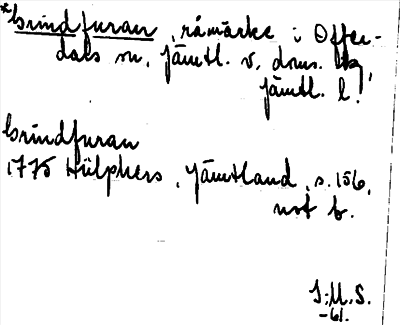 *Grindfuran, råmärke i Offer-
dals sn, Jämtl. v. doms. tg,
Jämtl. l.
Grindfuran
1775 Hülphers, Jämtland, s. 156,
not b.
J:M.S.
-61.